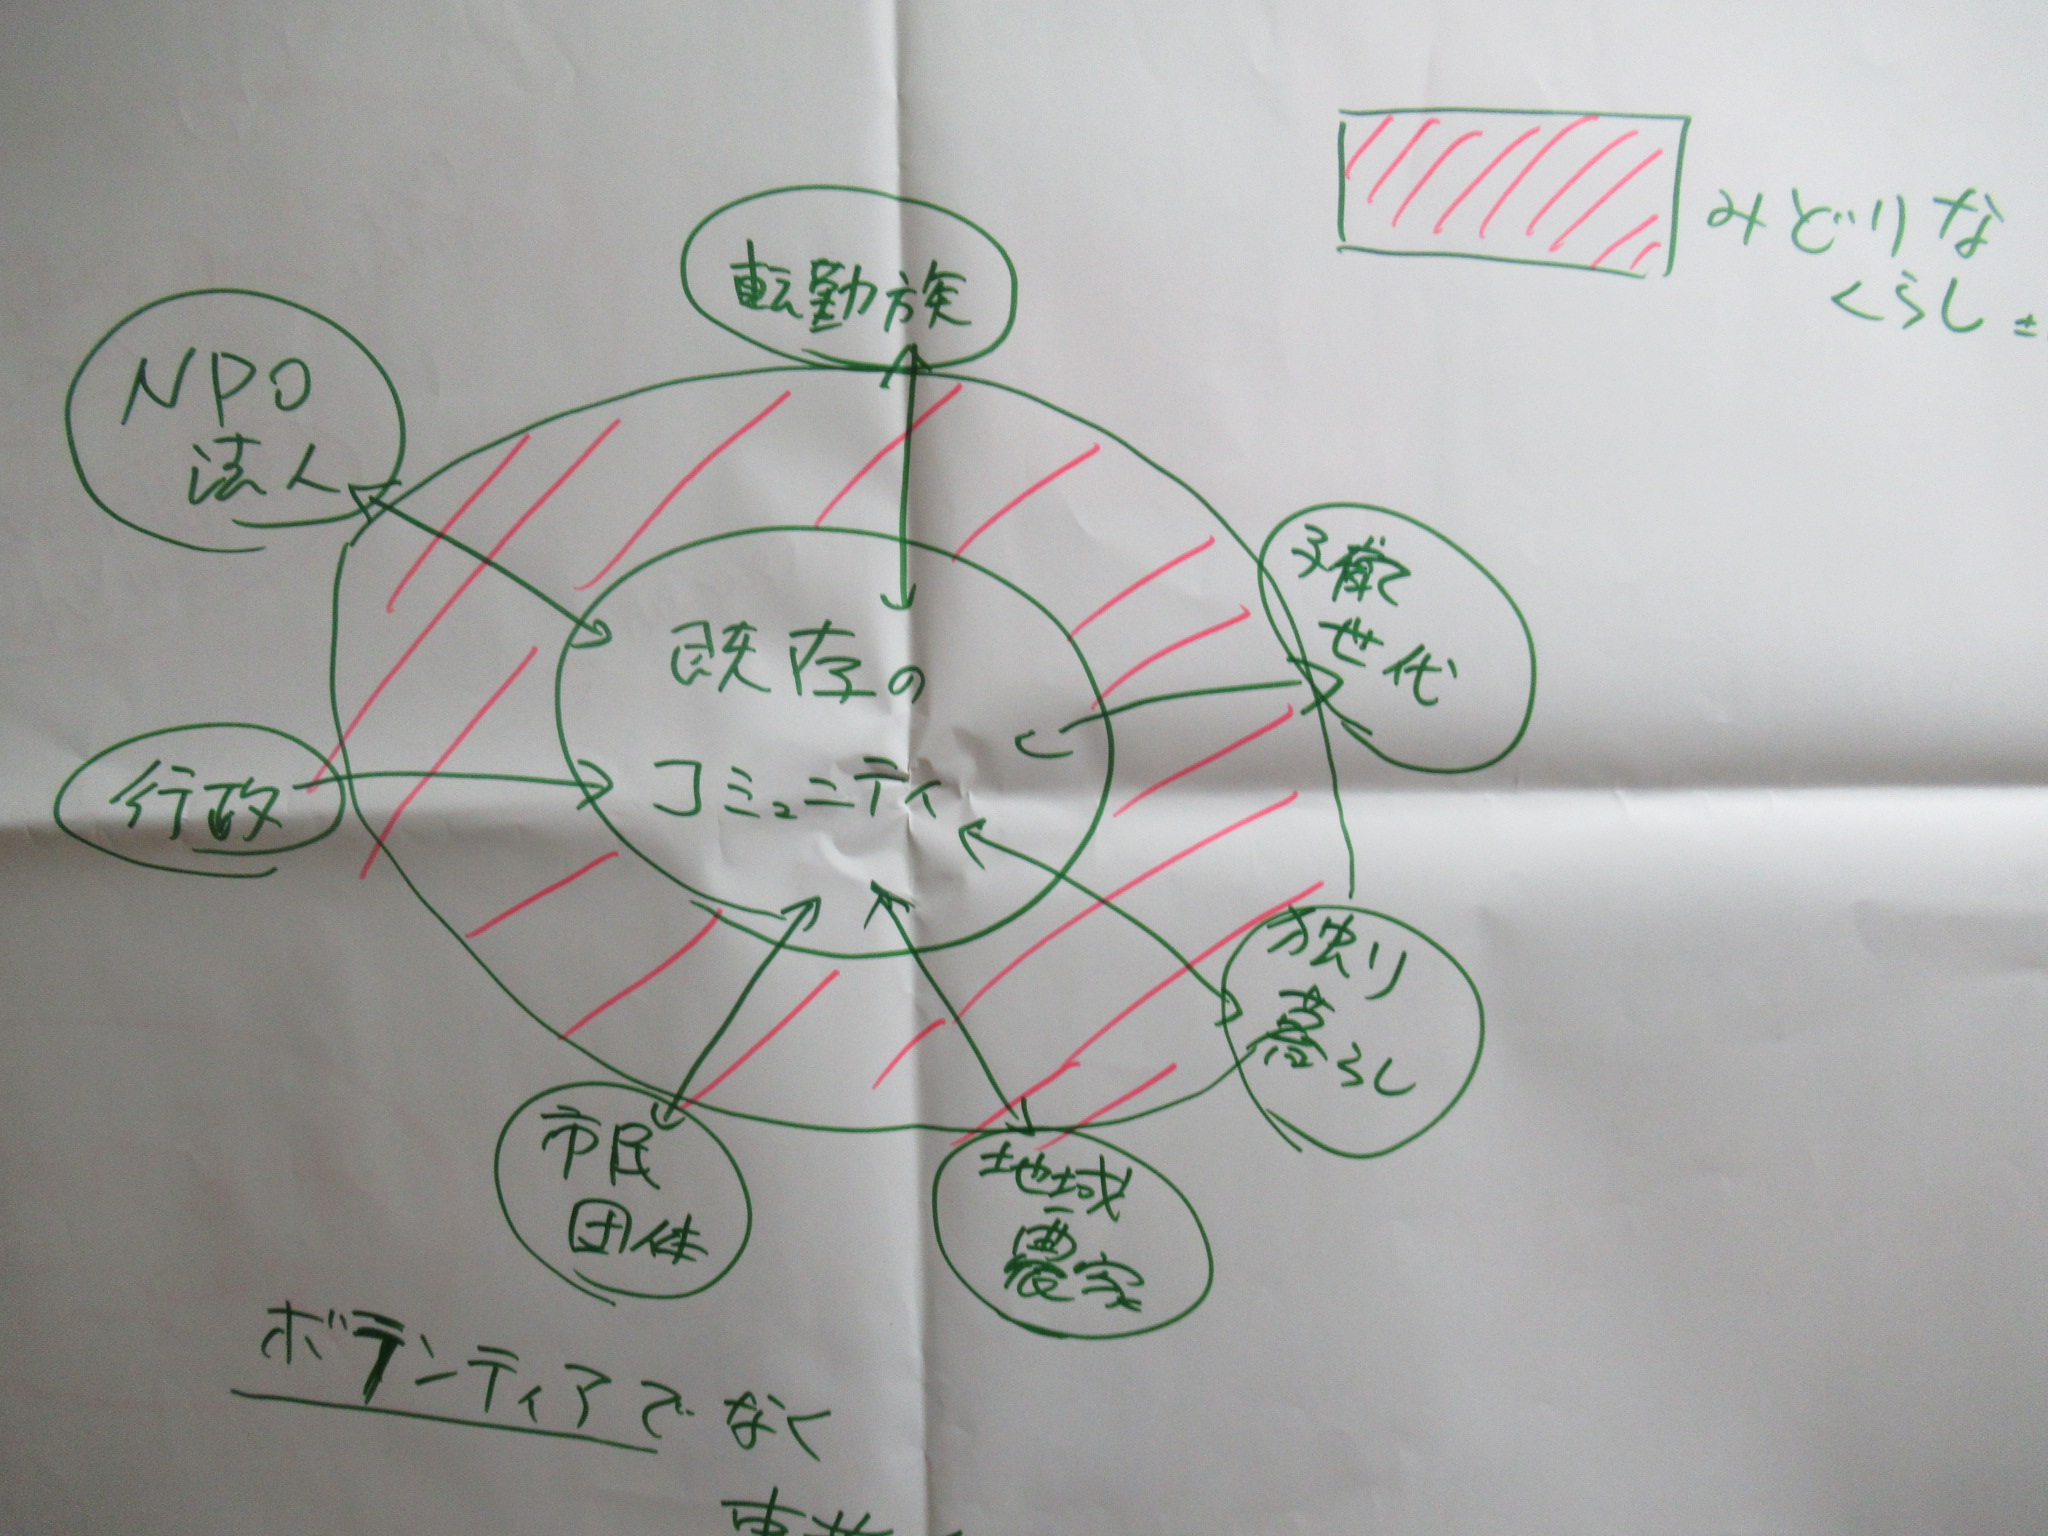 みどりな
くらし
転勤族
NPO
法人
子育て
世代
既存の
コミュニティ
行政
独り
暮らし
市民
団体
地域
農家
ボランティアでなく